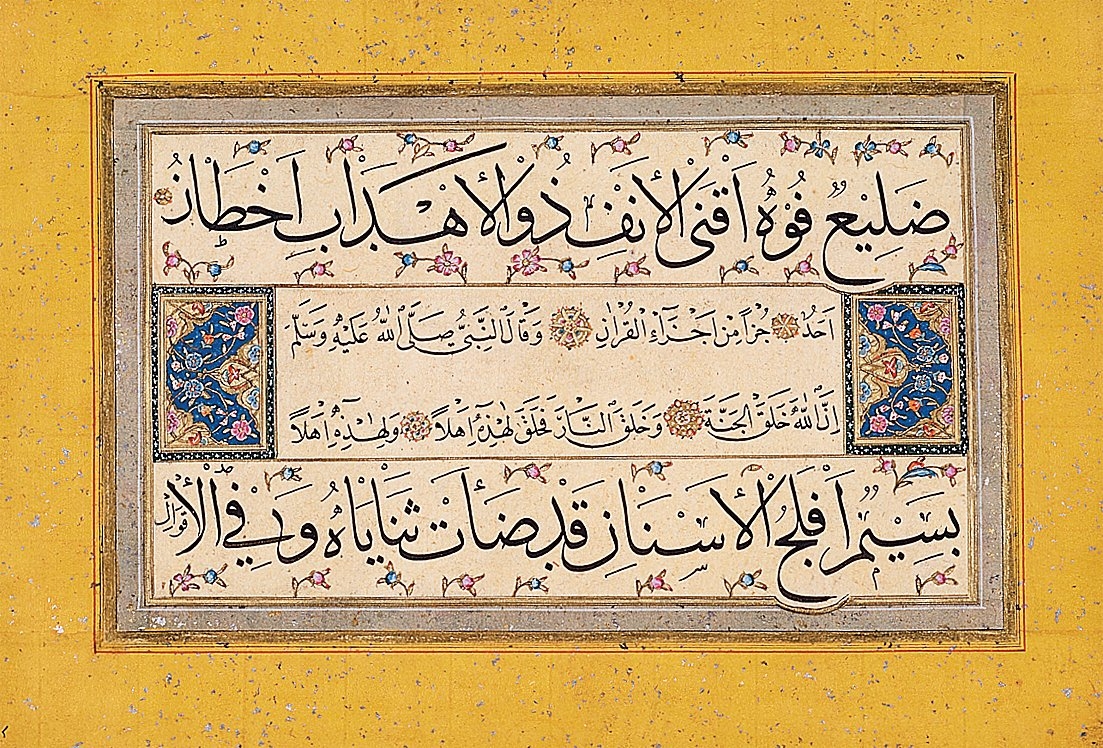 ضَلِيعٌ فُوهُ اَقْنَى الاَنْفِ ذُو الاَهْدَابِ
اَحَدُ جُزْاً مِنْ اَجْزَاءِ القُرْاٰنِ وَقَالَ النَّبِيُّ صَلَّى اللهُ عَلَيْهِ وَسَلَّمَ
اِنَّ اللهَ خَلَقَ الجَنَّةَ وَخَلَقَ النَّارَ فَخَلَقَ لِهٰذِهِ اَهْلاً وَلِهٰذِهِ اَهْلاً
بَسِيمٌ اَفْلَجُ الاَسْنَانِ قَدْ ضَاَتْ ثَنَايَاهُ فِي الاَقْوَالِ